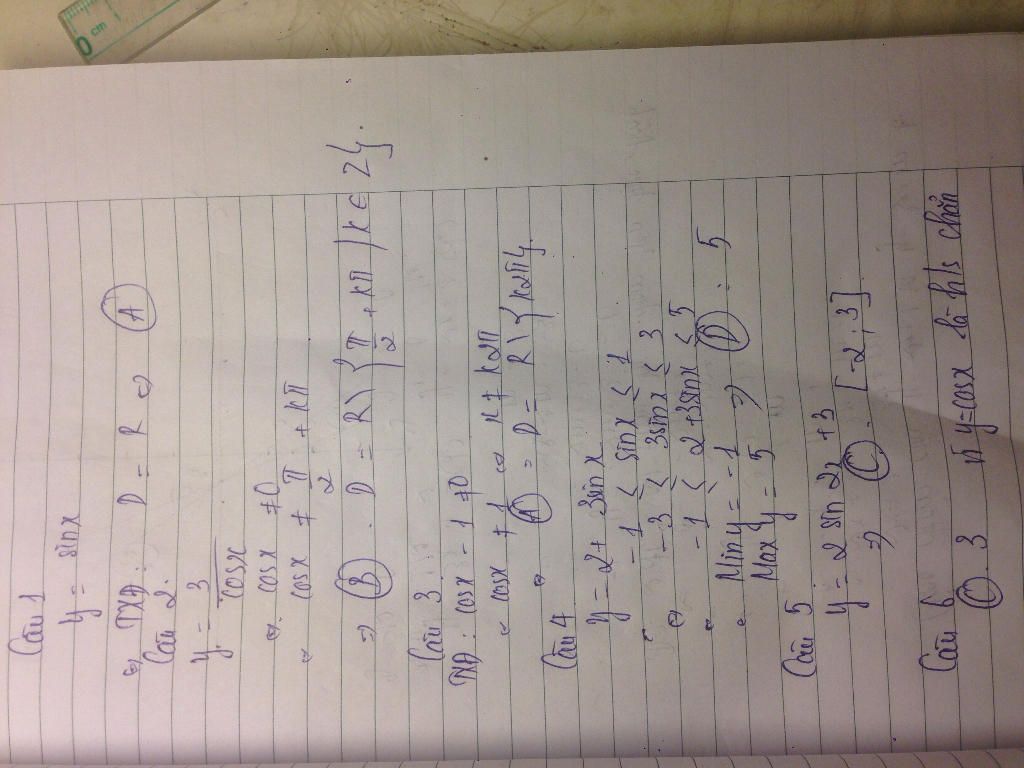 Câu 1
y = sinx
⇔ TXĐ: D = R ⇔ Ⓐ
Câu 2:
y = 3/cosx
⇔ cosx ≠ 0
⇔ cosx ≠ π/2 + kπ
⇒ Ⓑ. D = R\{π/2 + kπ | k ∈ Z}.
Câu 3:
TXĐ: cosx - 1 ≠ 0
⇔ cosx ≠ 1 ⇔ x ≠ k2π
⇔ Ⓐ = D = R\{k2π}
Câu 4
y = 2 + 3sinx
-1 ≤ sinx ≤ 1
⇔ -3 ≤ 3sinx ≤ 3
⇔ -1 ≤ 2+3sinx ≤ 5
Min y = -1 ⇒ Ⓓ: 5
Max y = 5
Câu 5
y = 2 sin 2x + 3
⇒ Ⓒ. [-2; 3]
Câu 6
Ⓒ. 3 vì y=cosx là h/s chẵn
0 cm